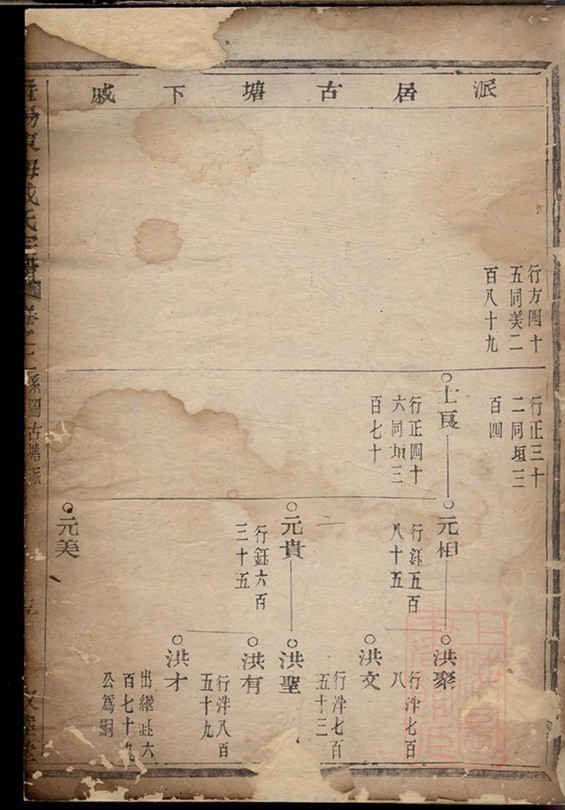 派居古塘下戚
行方四十
五同美二
百八十九
行正三十
二同垣三
百四
士良
行正四十
六同垣三
百七十
元相
行鈺五百
八十五
元貴
行鈺六百
三十五
元美
洪聚
行泮七百
八
洪文
行泮七百
五十三
洪聖
洪有
行泮八百
五十九
洪才
出繼鈺六
百七十九
公爲嗣
暨陽東海戚氏宗譜
卷
系圖古塘派